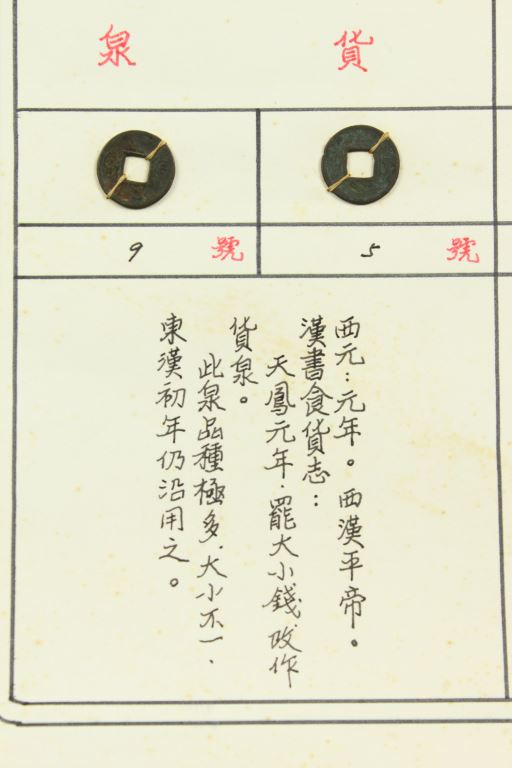 貨泉
5 號
9 號
西元：元年。西漢平帝。
漢書食貨志：
天鳳元年．罷大小錢．改作
貨泉。
此泉品種極多．大小不一．
東漢初年仍沿用之。